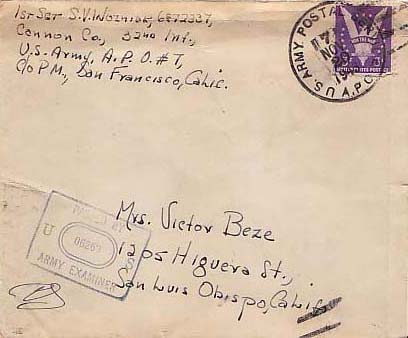 1st Sgt S.V. Wozniak, 6872337,
Cannon Co., 32nd Inf.,
U.S. Army, A.P.O. #7,
c/o P.M., San Francisco, Calif.
U.S. ARMY POSTAL
NOV
29
A.P.O.
WIN THE WAR
UNITED STATES POSTAGE
PASSED BY
U S
06263
ARMY EXAMINER
Mrs. Victor Beze
1205 Higuera St.,
San Luis Obispo, Calif.